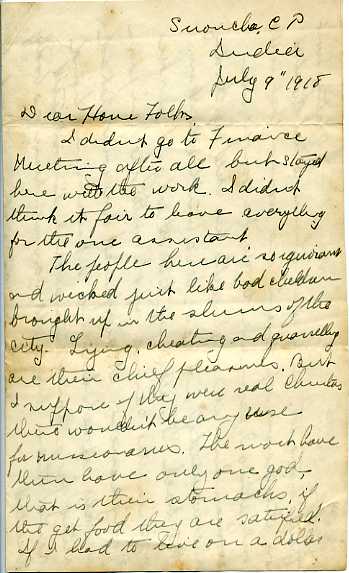 C P
India
July 9" 1918
Dear Home Folks,
I didnt go to Finance
Meeting after all but stayed
here with the work. I didnt
think it fair to leave everything
for the one assistant.
The people here are so ignorant
and wicked just like bad children
brought up in the slums of the
city. Lying, cheating and quarrelling
are their chief pleasures. But
I suppose if they were real Christians
there wouldn't be any use
for missionaries. The most have
them have only one god,
that is their stomachs, if
the get food they are satisfied.
If I had to live on a dollar